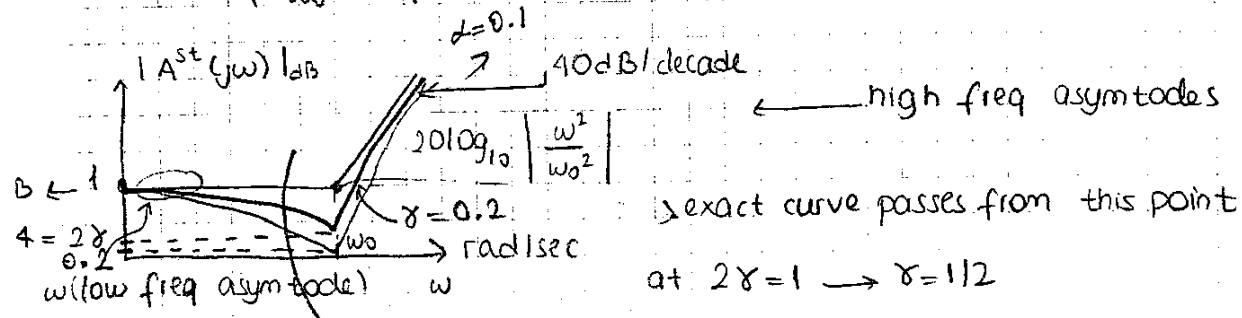 α=0.1
|A^st (jω)|dB
40dB/decade
high freq asymtodes
20log10 |ω²/ω0²|
B ← 1
γ=0.2
exact curve passes from this point
4 = 2γ
0.2
ω0
rad/sec
ω(low freq asymtode)
ω
at 2γ=1 → γ=1/2